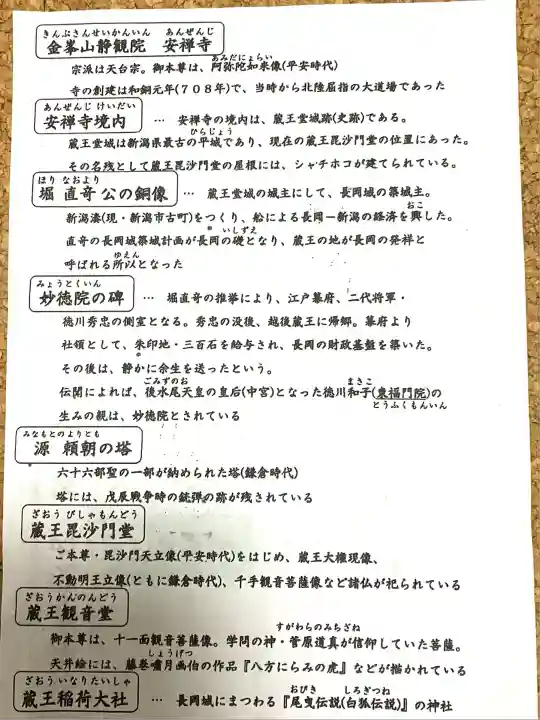 きんぶさんせいかんいん　あんぜんじ
金峯山静観院　安禅寺
あみだにょらい
宗派は天台宗。御本尊は、阿弥陀如来像(平安時代)
寺の創建は和銅元年(708年)で、当時から北陸屈指の大道場であった
あんぜんじ けいだい
安禅寺境内 … 安禅寺の境内は、蔵王堂城跡(史跡)である。
ひらじょう
蔵王堂城は新潟県最古の平城であり、現在の蔵王毘沙門堂の位置にあった。
その名残として蔵王毘沙門堂の屋根には、シャチホコが建てられている。
ほり なおより
堀 直竒 公の銅像 … 蔵王堂城の城主にして、長岡城の築城主。
おこ
新潟湊(現・新潟市古町)をつくり、船による長岡ー新潟の経済を興した。
いしずえ
直竒の長岡城築城計画が長岡の礎となり、蔵王の地が長岡の発祥と
ゆえん
呼ばれる所以となった
みょうとくいん
妙徳院の碑 … 堀直竒の推挙により、江戸幕府、二代将軍・
徳川秀忠の側室となる。秀忠の没後、越後蔵王に帰郷。幕府より
社領として、朱印地・三百石を給与され、長岡の財政基盤を築いた。
その後は、静かに余生を送ったという。
ごみずのお　まさこ
伝聞によれば、後水尾天皇の皇后(中宮)となった徳川和子(東福門院)の
とうふくもんいん
生みの親は、妙徳院とされている
みなもとのよりとも
源 頼朝の塔
六十六部聖の一部が納められた塔(鎌倉時代)
塔には、戊辰戦争時の銃弾の跡が残されている
ざおう びしゃもんどう
蔵王毘沙門堂
ご本尊・毘沙門天立像(平安時代)をはじめ、蔵王大権現像、
不動明王立像(ともに鎌倉時代)、千手観音菩薩像など諸仏が祀られている
ざおうかんのんどう
蔵王観音堂
すがわらのみちざね
御本尊は、十一面観音菩薩像。学問の神・菅原道真が信仰していた菩薩。
しょうげつ
天井絵には、藤巻嘯月画伯の作品『八方にらみの虎』などが描かれている
ざおういなりたいしゃ
蔵王稲荷大社 … 長岡城にまつわる『尾曳伝説(白狐伝説)』の神社
おびき　しろぎつね